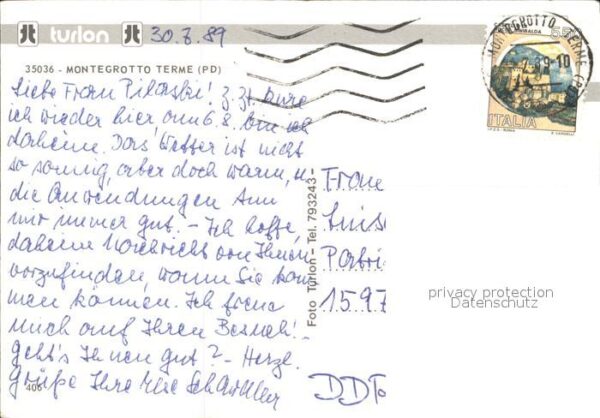 turlon 30.7.89
35036 - MONTEGROTTO TERME (PD)
Liebe Frau Pilaski! Z. Zt. kure
ich wieder hier am 6.8. bin ich
daheim. Das Wetter ist nicht
so sonnig, aber doch warm, u.
die Anwendungen tun
mir immer gut. - Ich hoffe,
daheim Nachricht von Ihnen
vorzufinden, wann Sie kom
men können. Ich freue
mich auf Ihren Besuch! -
Geht's Ihnen gut? - Herzl.
Grüße Ihre
406
Foto Turlon - Tel. 793243 -
MONTEGROTTO TERME (PD)
10
ITALIA
Frau
Luise
1597
DDR
privacy protection
Datenschutz